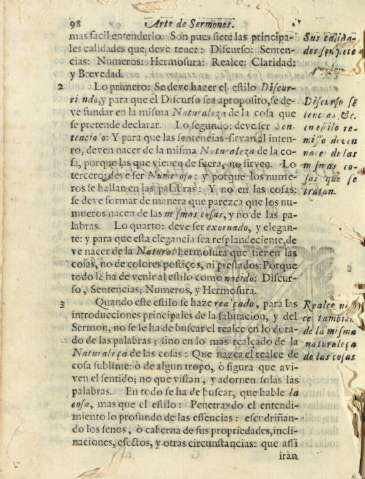 98 Arte de Sermones.
mas facil entenderlo. Son pues siete las principa-
les calidades que deve tener: Discurso: Senten-
cias: Numeros: Hermosura: Realce: Claridad:
y Brevedad.
2 Lo primero: Se deve hazer el estilo Discur-
rindo, y para que el Discurso sea aproposito, se de-
ve fundar en la misma Naturaleza de la cosa que
se pretende declarar. Lo segundo: deve ser Sen-
tencioso: Y para que las sentencias sirvan al inten-
ro, deven nacer de la misma Naturaleza de la co-
sa, porque las que vienen de fuera, no sirven. Lo
tercero, deve ser Numeroso: y porque los nume-
ros se hallan en las palabras: Y no en las cosas:
se deve formar de manera que parezca que los nu-
meros nacen de las mismas cosas, y no de las pa-
labras. Lo quarto: deve ser exornado, y elegan-
te: y para que esta elegancia sea resplandeciente, de
ve nacer de la Natural hermosura que tienen las
cosas, no de colores postiços, ni prestados: Porque
todo se ha de venir al estilo como nacido: Discur-
so, Sentencias, Numeros, y Hermosura.
3 Quando este estilo se haze realçado, para las
introducciones principales de la salutacion, y del
Sermon, no se le ha de buscar el realce en lo dora-
do de las palabras; sino en lo mas realçado de la
Naturaleza de las cosas: Que nazca el realce de
cosa sublime: ò de algun tropo, ò figura que avi-
ven el sentido; no que vistan, y adornen solas las
palabras. En todo se ha de buscar, que hable la
cosa, mas que el estilo: Penetrando el entendi-
miento lo profundo de las essencias: escudriñan-
do los senos, ò caberna de sus propriedades, incli-
naciones, efectos, y otras circunstancias: que assi
iràn
Sus calida-
des
Discurso sē
tencia
en estilo re-
miso deven
nacer de las
mismas co-
sas que se
tratan.
Realce
ce tambien
de la misma
naturaleza
de las cosas